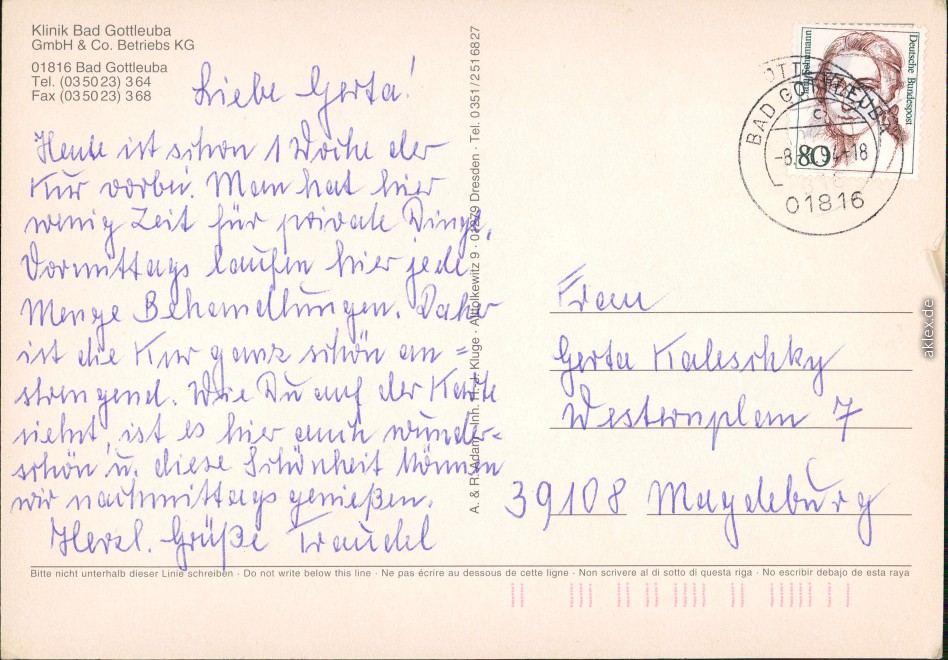 Klinik Bad Gottleuba
GmbH & Co. Betriebs KG
01816 Bad Gottleuba
Tel. (035023) 364
Fax (035023) 368
Liebe Gerta!
Heute ist schon 1 Woche der
Kur vorbei. Man hat hier
wenig Zeit für private Dinge.
Vormittags laufen hier jede
Menge Behandlungen. Daher
ist die Kur ganz schön an=
strengend. Wie Du auf der Karte
siehst, ist es hier auch wunder=
schön u. diese Schönheit können
wir nachmittags genießen.
Herzl. Grüße Traudel
A. & R. Adam · Inh. H.-J. Kluge · Alttolkewitz 9 · 01279 Dresden · Tel. 0351/2516827
Deutsche Bundespost
80
BAD GOTTLEUBA
01816
Frau
Gerta Kaleschky
Westernplan 7
39108 Magdeburg
Bitte nicht unterhalb dieser Linie schreiben · Do not write below this line · Ne pas écrire au dessous de cette ligne · Non scrivere al di sotto di questa riga · No escribir debajo de esta raya
aklex.de